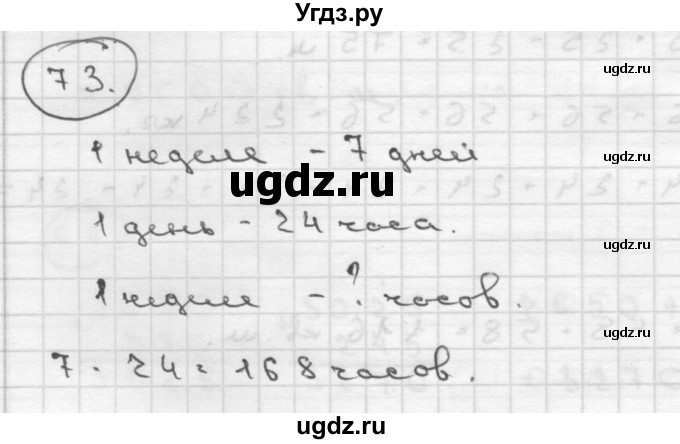 Угдз.ру
73.
ugdz.ru
1 неделя - 7 дней
ugdz.ru
ugdz.ru
1 день - 24 часа.
ugdz.ru
1 неделя - ? часов.
7 · 24 = 168 часов.
ugdz.ru
ugdz.ru